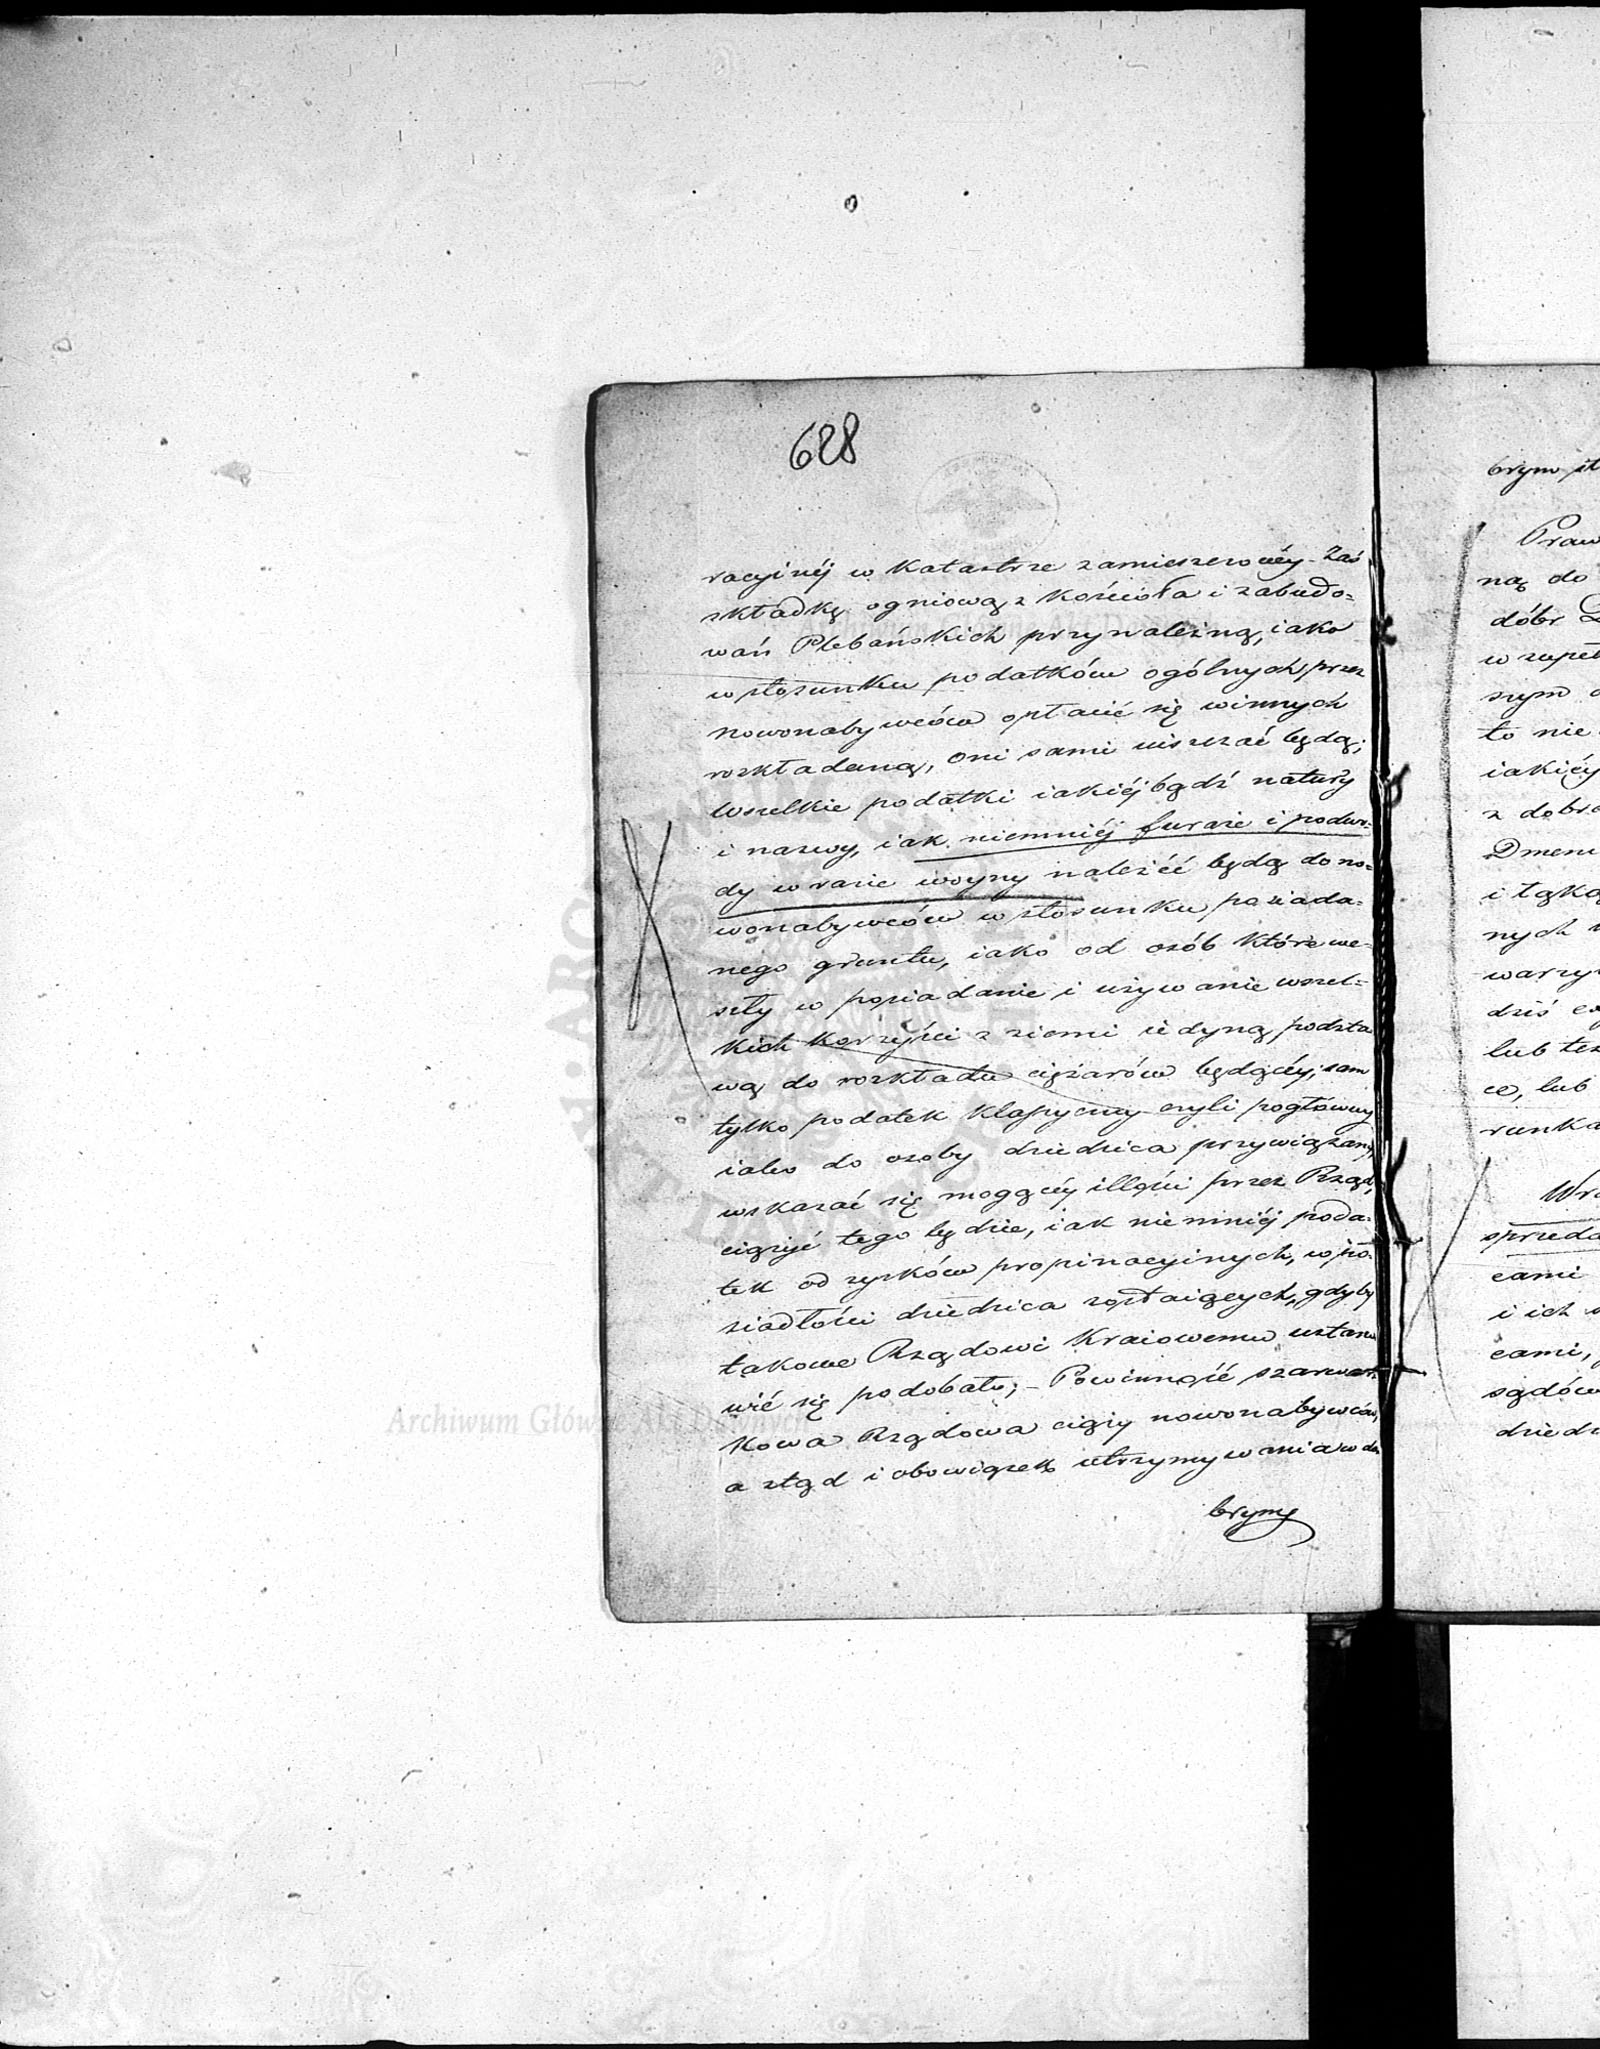 628
racyinéj w Katastrze zamieszczonéy. Zaś
składkę ogniową z kościoła i zabudo-
wań Plebańskich przynależną, iako
w stosunku podatków ogólnych przez
nowonabywców opłacić się winnych
rozkładaną, oni sami uiszczać będą;
Wszelkie podatki iakiéj bądź natury
i nazwy, iak niemniéj furaże i podwo-
dy w razie woyny należéć będą do no-
wonabywców w stosunku posiada-
nego gruntu, iako od osób które we-
szły w posiadanie i używanie wszel-
kich korzyści z ziemi iedyną podsta
wą do rozkładu ciężarów będącéy; sam
tylko podatek klassyczny czyli pogłówny
iako do osoby dziedzica przywiązany
wskazać się mogącéy illości przez Rząd,
ciążyć tego będzie, iak niemniéj poda-
tek od zysków propinacyinych, w po-
siadłości dziedzica zostaiących, gdyby
takowe Rządowi Kraiowemu ustano
wić się podobało; – Powinność szarwar-
kowa Rządowa ciąży nowonabywców,
a ztąd i obowiązek utrzymywania w do
brym
brym st
Praw
ną do
dóbr D
w zupeł
szym
to nie
iakiéy
z dobr
Dmen
i łąką
nych
warzy
dziś
lub też
ce, lub
runka
Wra
sprzeda
cami
i ich
cami,
sądów
dzied
Archiwum Główne Akt Dawnych